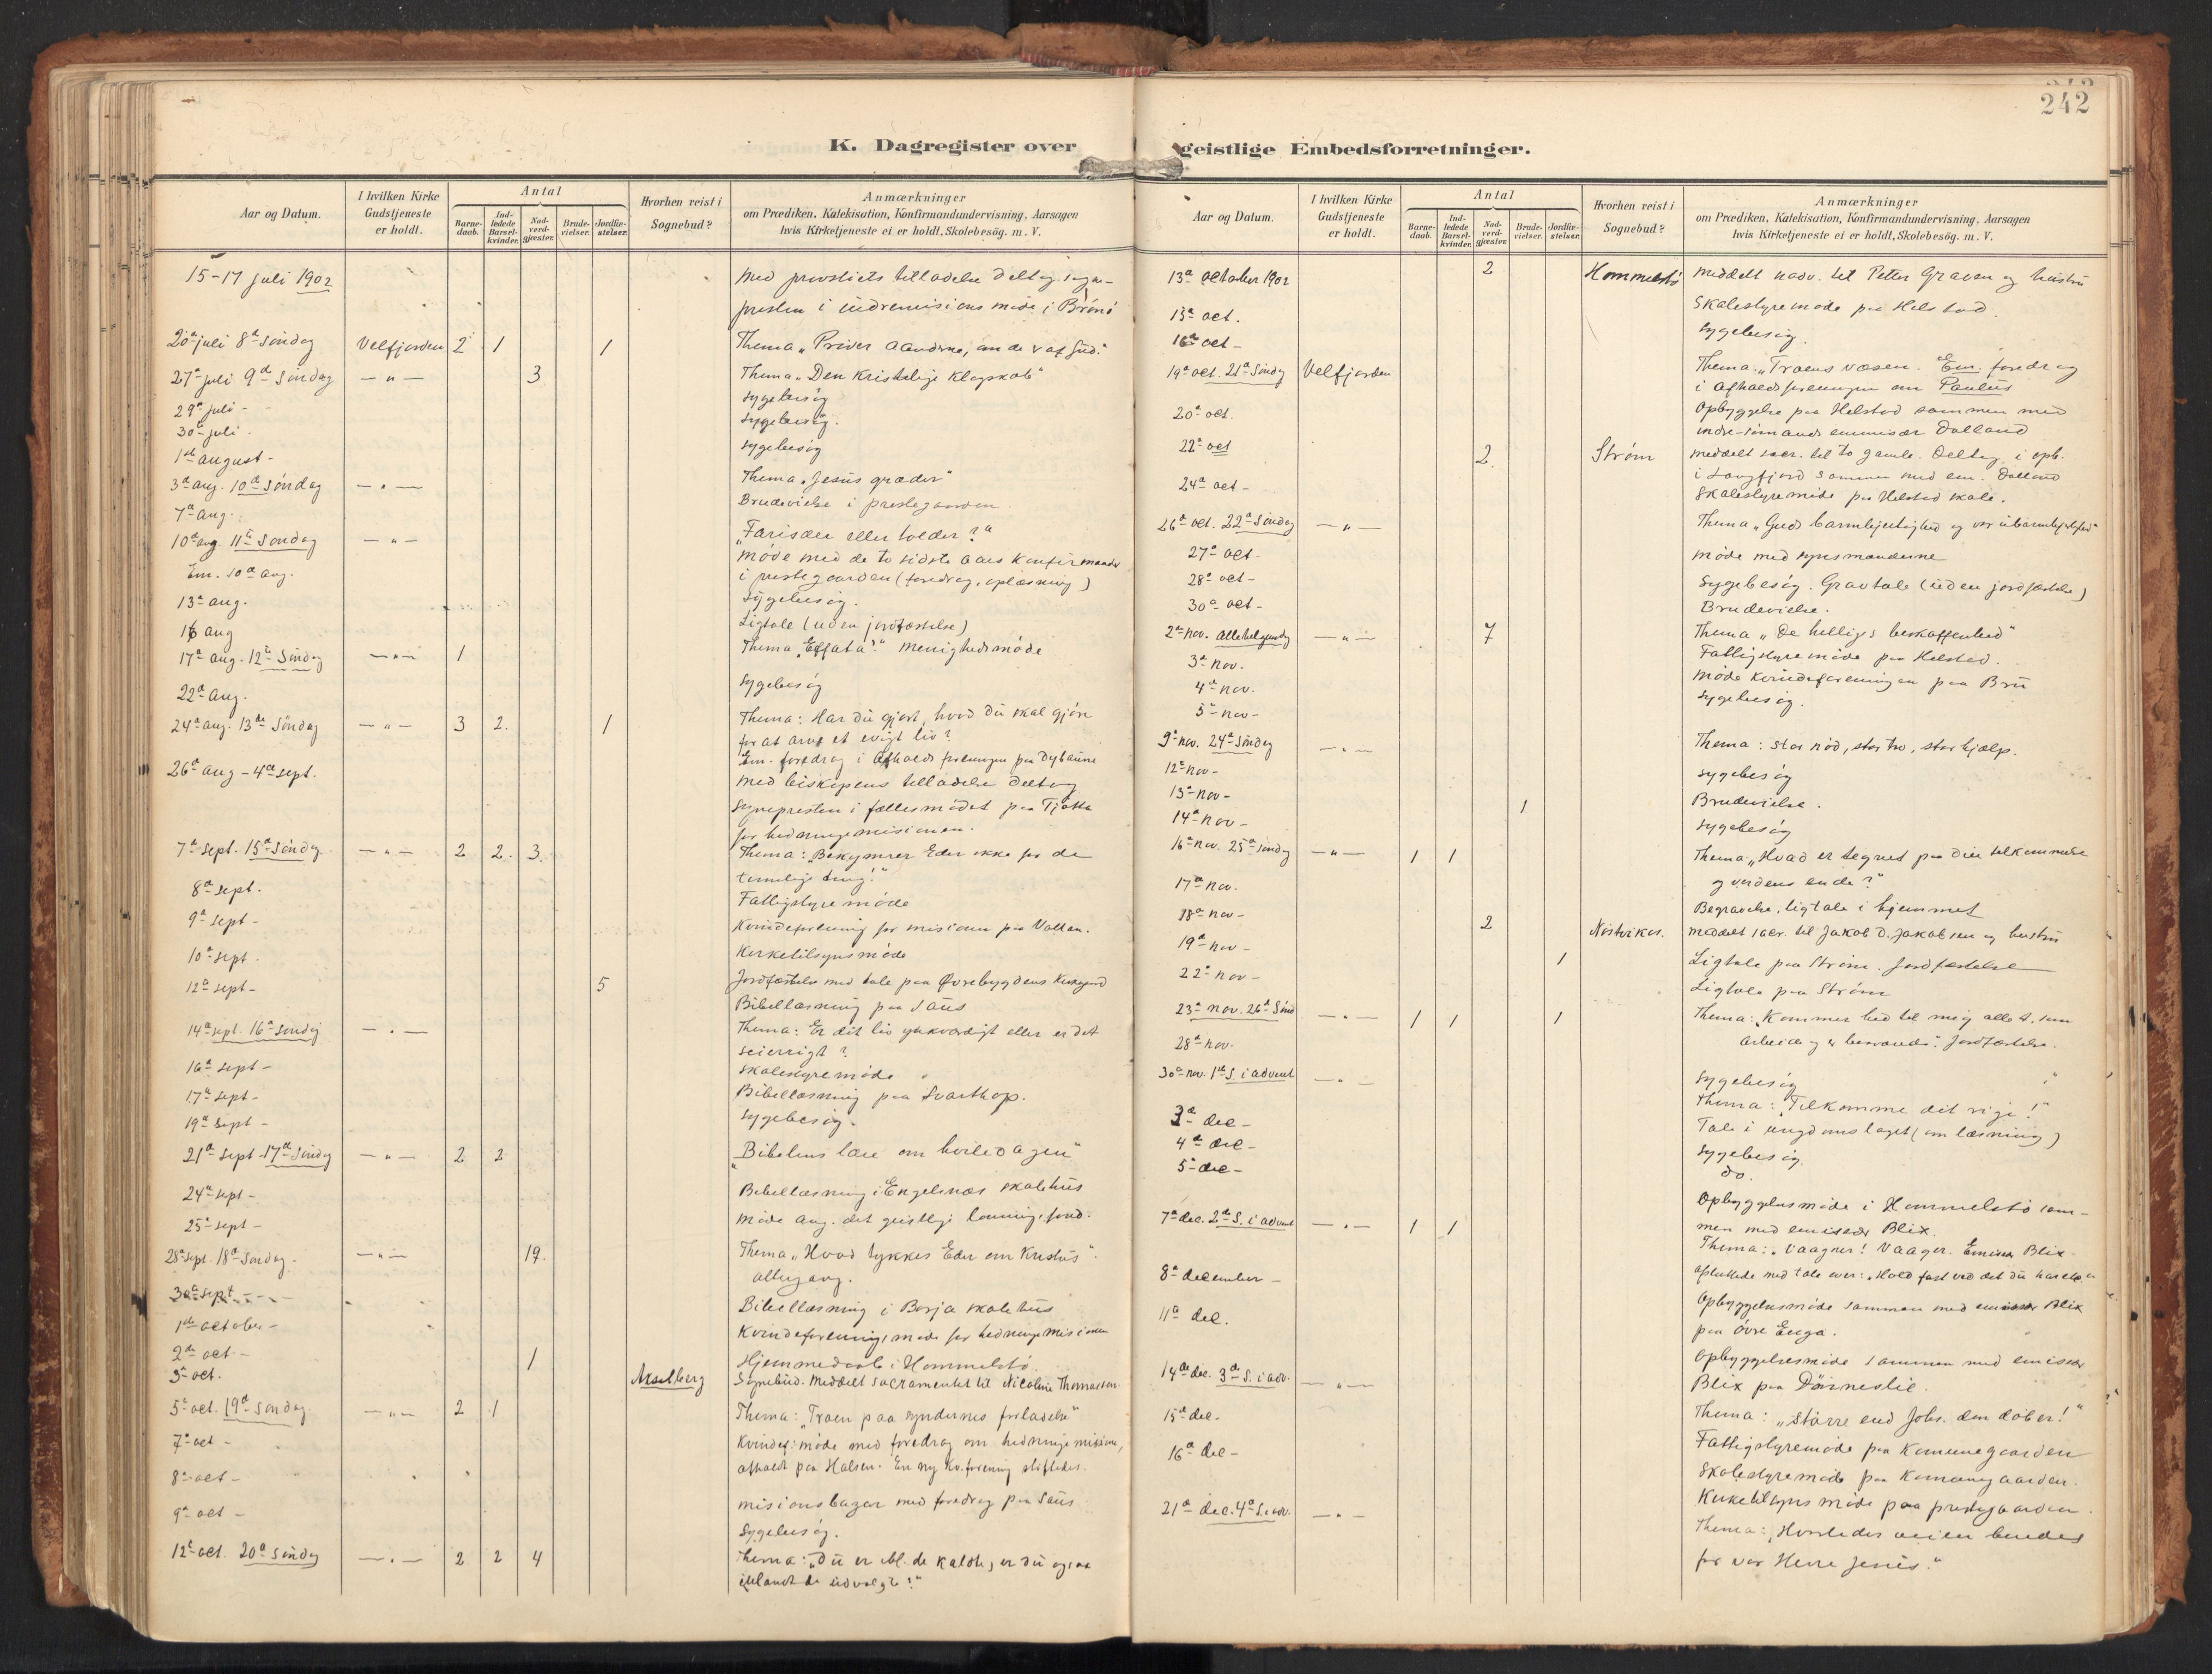 242
K. Dagregister over
Aar og Datum.
I hvilken Kirke Gudstjeneste er holdt.
Antal
Barne-daab.
Ind-ledede Barsel-kvinder.
Nad-verd-gjæster.
Brude-vielser.
Jordfæ-stelser.
Hvorhen reist i Sognebud?
Anmærkninger
om Prædiken, Katekisation, Konfirmandundervisning, Aarsagen
hvis Kirketjeneste ei er holdt, Skolebesøg. m. V.
15-17 juli 1902 Med provstiets tilladelse deltog sogne-
presten i indremisions møde i Brønø
20de juli 8de søndag Velfjorden 2 1 1 Thema "Prøver aanderne, om de er af Gud."
27de juli 9de Søndag -"- 3 Thema "Den kristelige klogskab"
29de juli - Sygebesøg
30de juli. Sygebesøg.
1ste august - Sygebesøg
3de aug. 10de Søndag -"- Thema "Jesus græder"
7de aug. Brudevielse i prestegaarden.
10de aug. 11te Søndag -"- "Farisæer eller tolder?"
Em. 10de aug. møde med de to sidste aars konfirmander
i prestegaarden (foredrag, oplæsning)
13de aug. Sygebesøg.
16 aug Ligtale (uden jordfæstelse)
17de aug. 12te Søndag -"- 1 Thema "Effata!" menighedsmøde
22de aug. Sygebesøg
24de aug. 13de Søndag -"- 3 2. 1 Thema: Har du gjort, hvad du skal gjøre
for at arve et evigt liv?
Em. foredrag i Afholdsforeningen paa
26de aug - 4de sept. med biskopens tilladelse deltog
Sognepresten i fællesmødet paa Tjøtta
for hedningemisionen.
7de sept. 15de Søndag -"- 2 2. 3. Thema: "Bekymrer Eder ikke for de
timelige ting!"
8de sept. Fattigstyremøde
9de sept - Kvindeforening for misionen paa
10de sept. Kirketilsynsmøde
12te sept - 5 Jordfæstelse med tale paa Øvrebygdens Kirkegaard
Bibellæsning paa Saus
14de sept. 16de Søndag -"- Thema: Er dit liv ynkværdigt eller er det
seierrigt?
16de sept - Skolestyremøde
17de sept - Bibellæsning paa Svarthop.
19de sept - Sygebesøg.
21de sept - 17de Søndag -"- 2 2 "Bibelens lære om hviledagen"
24de sept - Bibellæsning i Engelsnæs skolehus
25de sept - Møde ang. det geistlige lønningsfond.
28de sept. 18de Søndag. -"- 19. Thema "Hvad tykkes Eder om Kristus".
altergang.
30te sept - Bibellæsning i Borja skolehus
1ste october - Kvindeforeningsmøde for hedningemisionen
2den oct. - 1 Hjemmedaab i Hommelstø.
3de oct. Sognebud. Meddelt sacramentet til Nicoline Thomassen
5te oct. 19de Søndag. -"- 2 1 Thema: "Troen paa syndernes forladelse"
7de oct - Kvindef: møde med foredrag om hedningemisionen,
afholdt paa Halsen. En ny Kv.forening stiftedes.
8de oct - misionsbazar med foredrag paa Saus
9de oct - Sygebesøg.
12te oct. 20de Søndag -"- 2 2 4 Thema: "Du er bl. de kaldte, er du ogsaa
iblandt de udvalgte?"
geistlige Embedsforretninger.
Aar og Datum.
I hvilken Kirke Gudstjeneste er holdt.
Antal
Barne-daab.
Ind-ledede Barsel-kvinder.
Nad-verd-gjæster.
Brude-vielser.
Jordfæ-stelser.
Hvorhen reist i Sognebud?
Anmærkninger
om Prædiken, Katekisation, Konfirmandundervisning, Aarsagen
hvis Kirketjeneste ei er holdt, Skolebesøg. m. V.
13de october 1902 2 Hommelstø meddelt nadv. til Petter Graven og hustru
13de oct. Skolestyremøde paa Helstad.
16de oct - Sygebesøg.
19de oct. 21de Søndag Velfjorden Thema. "Troens væsen. Em. foredrag
i afholdsforeningen om Paulus
20de oct. Opbyggelse paa Helstad sammen med
emmisær Dalland
22de oct 2. Strøm meddelt sacr. til to gamle. Deltog i opb.
i Langfjord sammen med em. Dalland
24de oct - Skolestyremøde paa Helstad skole.
26de oct. 22de Søndag -"- Thema "Guds barmhjertighed og vor ubarmhjertighed"
27de oct - møde med synsmændene
28de oct - Sygebesøg. Gravtale (uden jordfæstelse)
30te oct - Brudevielse.
2den nov. allehelgensdag -"- 7 Thema "De helliges beskaffenhed"
3de nov. Fattigstyremøde paa Helstad.
4de nov. Møde kvindeforeningen paa Bru
5te nov - Sygebesøg.
9de nov. 24de Søndag -"- Thema: stor nød, stor tro, stor hjælp.
12te nov - Sygebesøg
13de nov - 1 Brudevielse.
14de nov - Sygebesøg
16de nov. 25de Søndag -"- 1 1 Thema "Hvad er tegnet paa din tilkommelse
og verdens ende?"
17de nov. Begravelse, ligtale i hjemmet
18de nov - 2 meddelt sacr. til Jakob D. Jakobsen og hustru
19de nov - 1 Ligtale paa Strøm. Jordfæstelse
22de nov - Ligtale paa Strøm
23de nov. 26de Sønd -"- 1 1 1 Thema: "Kommer hid til mig alle I, som
arbeide og er besværede". Jordfæstelse.
28de nov. Sygebesøg
30te nov. 1ste S. i advent -"- Thema: "Tilkomme dit rige!"
3de dec - Tale i ungdomslaget (om læsning)
4de dec - Sygebesøg
5te dec - do.
Opbyggelsesmøde i Hommelstø sam-
men med emisær Blix.
7de dec. 2den S. i advent -"- 1 1 Thema: "Vaagner! Vaager. Emisær Blix
afsluttede med tale over: "Hold fast ved det du har
8de december - Opbyggelsesmøde sammen med emisær Blix
paa Øvre Enga.
11te dec. Opbyggelsesmøde sammen med emisær
Blix paa
14de dec. 3de S. i adv. -"- Thema: "Større end Johs. den døber!"
15de dec. Fattigstyremøde paa Komunegaarden
16de dec - Skolestyremøde paa Komunegaarden.
Kirketilsynsmøde paa prestegaarden.
21de dec. 4de S. i adv. -"- Thema: "Hvorledes veien beredes
for vor Herre Jesus."